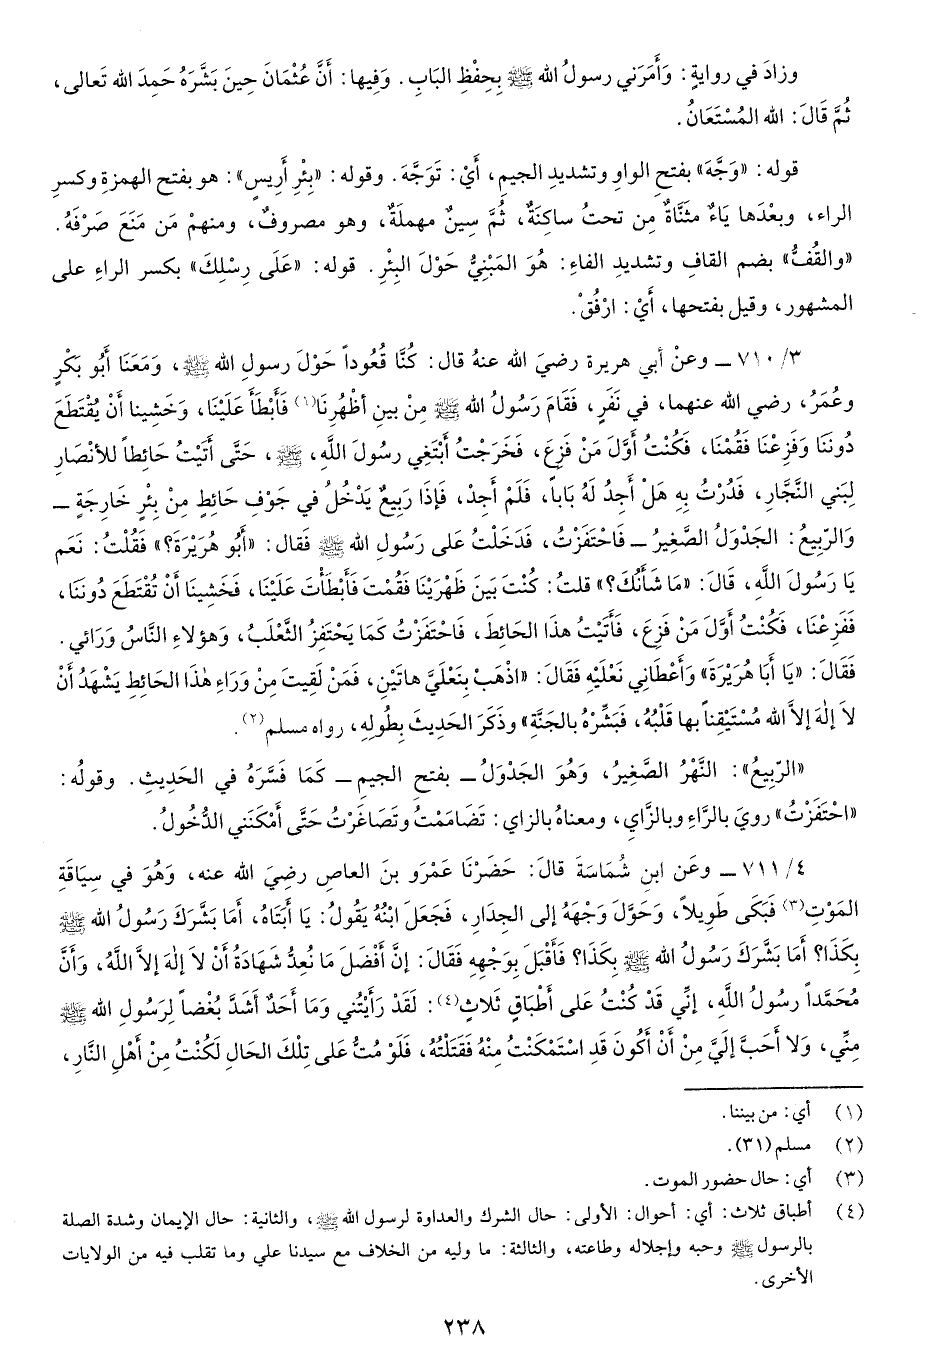 وزادَ في روايةٍ: وَأَمَرَني رسولُ الله ﷺ بِحِفْظِ البَابِ. وَفِيها: أَنَّ عُثْمَانَ حِينَ بَشَّرَهُ حَمِدَ الله تَعالى،
ثُمَّ قَالَ: الله المُسْتَعَانُ.
قوله: «وَجَّهَ» بفتحِ الواوِ وتشديدِ الجيمِ، أَيْ: تَوَجَّهَ. وقوله: «بِئْرِ أَرِيسٍ»: هو بفتحِ الهمزةِ وكسرِ
الراء، وبعْدَها ياءٌ مثنَّاةٌ مِن تحتُ ساكِنَةٌ، ثُمَّ سِينٌ مهملَةٌ، وهو مصروفٌ، ومنهمْ مَن مَنَعَ صَرْفَهُ.
«والقُفُّ» بضم القافِ وتشديدِ الفاءِ: هُوَ المَبْنِيُّ حَوْلَ البِئْرِ. قوله: «عَلَى رِسْلِكَ» بكسر الراءِ على
المشهور، وقيل بفتحها، أَيْ: ارْفُقْ.
٣/ ٧١٠ ـ وعنْ أبي هريرة رضيَ الله عنهُ قال: كُنَّا قُعُوداً حَوْلَ رسولِ الله ﷺ، وَمَعَنَا أَبُو بَكْرٍ
وعُمَرُ، رضي الله عنهما، في نَفَرٍ، فَقَامَ رَسُولُ الله ﷺ مِنْ بينِ أَظْهُرِنَا(١) فَأَبْطَأَ عَلَيْنَا، وَخَشِينا أَنْ يُقْتَطَعَ
دُونَنَا وَفَزِعْنَا فَقُمْنَا، فَكُنْتُ أَوَّلَ مَنْ فَزِعَ، فَخَرَجْتُ أَبْتَغِي رسولَ اللَّهِ، ﷺ، حَتَّى أَتَيْتُ حَائِطاً للأَنْصَارِ
لِبَني النَّجَّارِ، فَدُرْتُ بِهِ هَلْ أَجِدُ لَهُ بَاباً، فَلَمْ أَجِدْ، فَإِذَا رَبِيعٌ يَدْخُلُ في جَوْفِ حَائِطٍ مِنْ بِئْرٍ خَارِجَةٍ ـ
وَالرَّبِيعُ: الجَدْوَلُ الصَّغِيرُ ـ فَاحْتَفَزْتُ، فَدَخَلْتُ على رَسُولِ الله ﷺ فقال: «أَبُو هُرَيْرَةَ؟» فَقُلْتُ: نَعَم
يا رَسُولَ اللَّهِ، قَالَ: «مَا شَأْنُكَ؟» قلتُ: كُنْتَ بَينَ ظَهْرَيْنَا فَقُمْتَ فَأَبْطَأْتَ عَلَيْنَا، فَخَشِينا أَنْ تُقْتَطَعَ دُونَنَا،
فَفَزِعْنَا، فَكُنْتُ أَوَّلَ مَنْ فَزِعَ، فَأَتَيْتُ هذا الحَائِطَ، فَاحْتَفَزْتُ كَمَا يَحْتَفِزُ الثَّعْلَبُ، وَهؤلاءِ النَّاسُ وَرَائي.
فَقَالَ: «يَا أَبَا هُرَيْرَةَ» وَأَعْطَاني نَعْلَيْهِ فَقَالَ: «اذْهَبْ بِنَعْلَيَّ هَاتَيْنِ، فَمَنْ لَقِيتَ مِنْ وَرَاءِ هٰذَا الحَائِطِ يَشْهَدُ أَنْ
لاَ إلٰهَ إلاَّ الله مُسْتَيْقِناً بها قَلْبُهُ، فَبَشِّرْهُ بالجَنَّةِ» وذَكَرَ الحَدِيثَ بِطُولِهِ، رواه مسلم(٢).
«الرَّبِيعُ»: النَّهْرُ الصَّغِيرُ، وَهُوَ الجَدْوَلُ ـ بفتح الجيم ـ كَمَا فَسَّرَهُ في الحَدِيثِ. وقولُه:
«احْتَفَزْتُ» رويَ بالرَّاءِ وبالزَّاي، ومعناه بالزاي: تَضَامَمْتُ وتَصَاغَرْتُ حَتَّى أَمْكَنَني الدُّخُولُ.
٤/ ٧١١ ـ وعَن ابنِ شُمَاسَةَ قالَ: حَضَرْنَا عَمْرَو بنَ العاصِ رضيَ الله عنه، وَهُوَ في سِيَاقَةِ
المَوْتِ(٣) فَبَكَى طَوِيلاً، وَحَوَّلَ وَجْهَهُ إلى الجِدَارِ، فَجَعَلَ ابْنُهُ يَقُولُ: يَا أَبَتَاهُ، أَمَا بَشَّرَكَ رَسُولُ الله ﷺ
بِكَذَا؟ أَمَا بَشَّرَكَ رَسُولُ الله ﷺ بِكَذَا؟ فَأَقْبَلَ بِوَجْهِهِ فَقَالَ: إنَّ أَفْضَلَ مَا نُعِدُّ شَهَادَةُ أَنْ لاَ إلٰهَ إلاَّ اللَّهُ، وَأَنَّ
مُحَمَّداً رسُولُ اللَّهِ، إنِّي قَدْ كُنْتُ عَلى أَطْبَاقٍ ثَلاثٍ(٤): لَقَدْ رَأَيْتُني وَمَا أَحَدٌ أَشَدَّ بُغْضاً لِرَسُولِ الله ﷺ
مِنِّي، وَلا أَحَبَّ إلَيَّ مِنْ أَنْ أَكُونَ قَدِ اسْتَمْكَنْتُ مِنْهُ فَقَتَلْتُهُ، فَلَوْ مُتُّ عَلى تِلْكَ الحَالِ لَكُنْتُ مِنْ أَهْلِ النَّارِ،
(١) أي: من بيننا.
(٢) مسلم (٣١).
(٣) أي: حال حضور الموت.
(٤) أطباق ثلاث: أي: أحوال: الأولى: حال الشرك والعداوة لرسول الله ﷺ، والثانية: حال الإيمان وشدة الصلة
بالرسول ﷺ وحبه وإجلاله وطاعته، والثالثة: ما وليه من الخلاف مع سيدنا علي وما تقلب فيه من الولايات
الأخرى.
٢٣٨